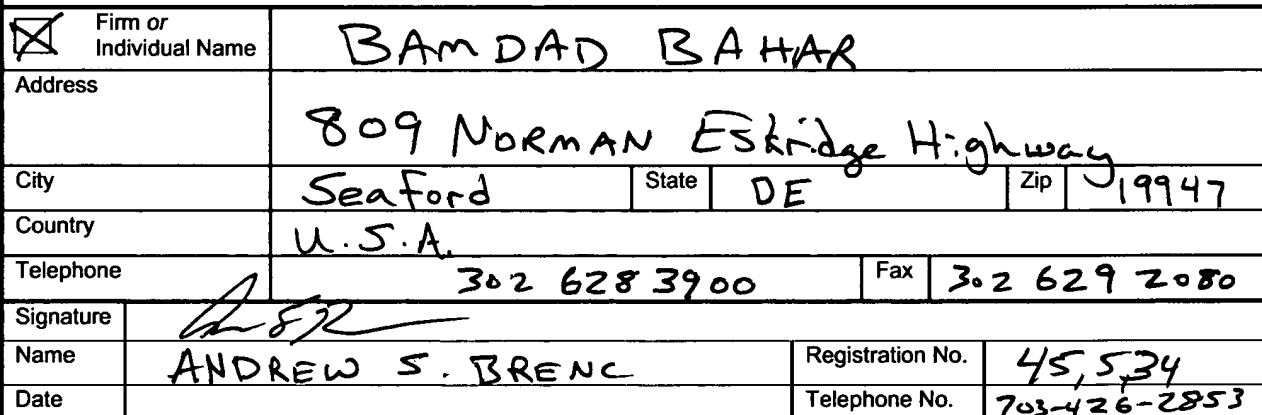 Firm or
Individual Name BAMDAD BAHAR
Address
809 NORMAN Eskridge Highway
City Seaford State DE Zip 19947
Country U.S.A.
Telephone 302 628 3900 Fax 302 629 2080
Signature
Name ANDREW S. BRENC Registration No. 45,534
Date Telephone No. 703-426-2853